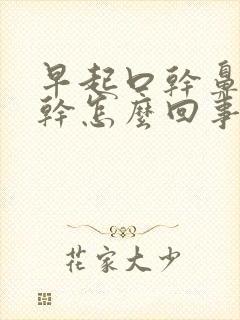 早起口幹鼻
幹怎麼回事
花家大少